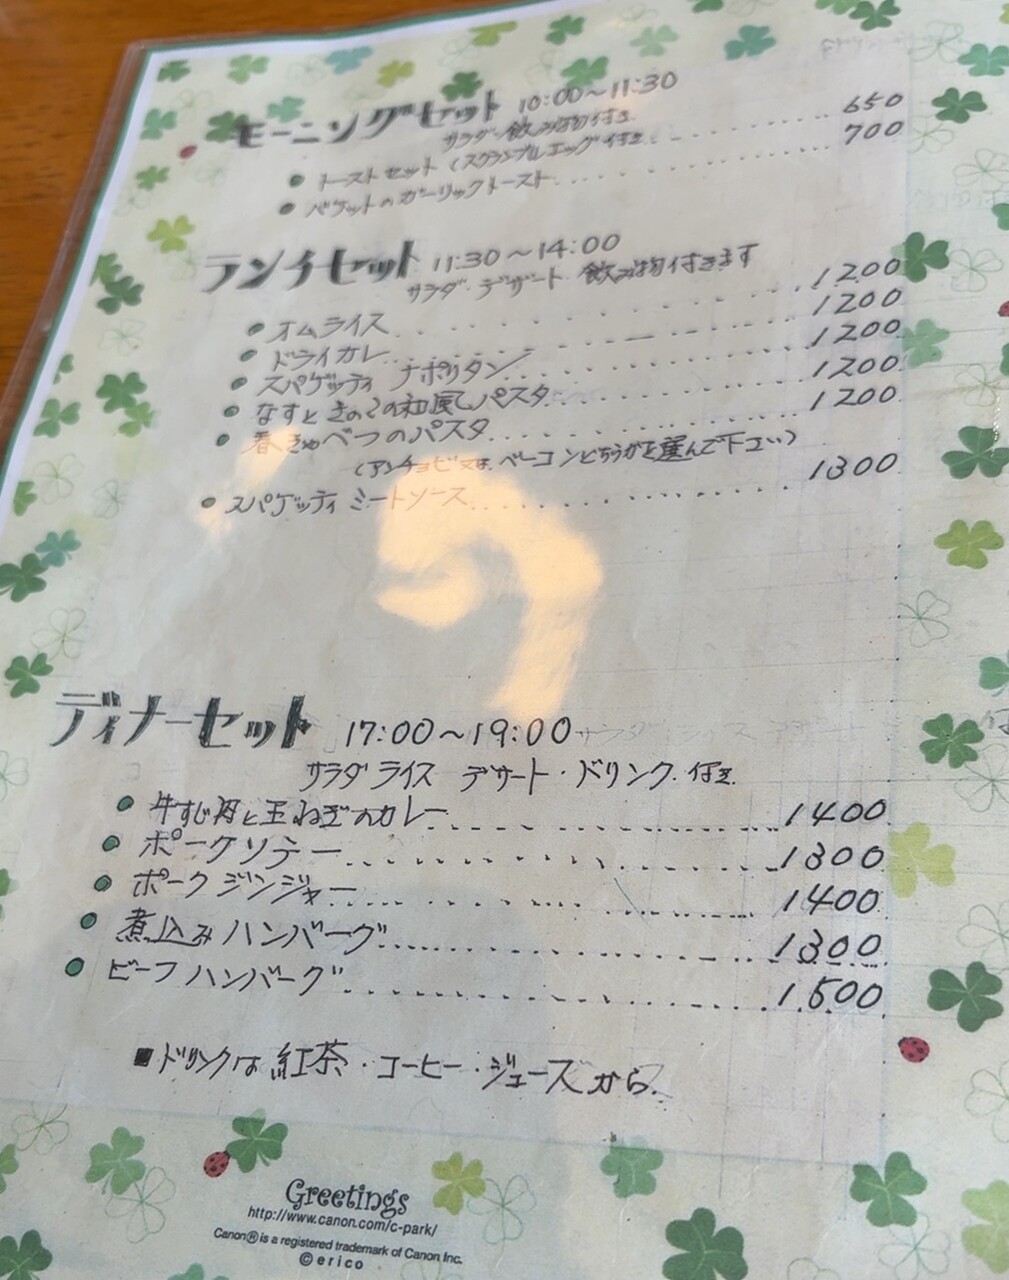 モーニングセット 10:00～11:30
サラダ・飲み物付き
トーストセット（スクランブルエッグ付き..... 650
バケットのガーリックトースト..... 700
ランチセット 11:30～14:00
サラダ・デザート・飲み物付きます
オムライス..... 1200
ドライカレー..... 1200
スパゲッティ ナポリタン..... 1200
なすときのこの和風パスタ..... 1200
春きゃべつのパスタ..... 1200
（アンチョビ又は、ベーコンどちらかを選んで下さい）
スパゲッティ ミートソース..... 1300
ディナーセット 17:00～19:00
サラダ ライス デザート・ドリンク 付き
牛すじ肉と玉ねぎのカレー..... 1400
ポークソテー..... 1300
ポークジンジャー..... 1400
煮込みハンバーグ..... 1300
ビーフハンバーグ..... 1,500
■ドリンクは紅茶・コーヒー・ジュースから.
Greetings
http://www.canon.com/c-park/
Canon® is a registered trademark of Canon Inc.
©erico